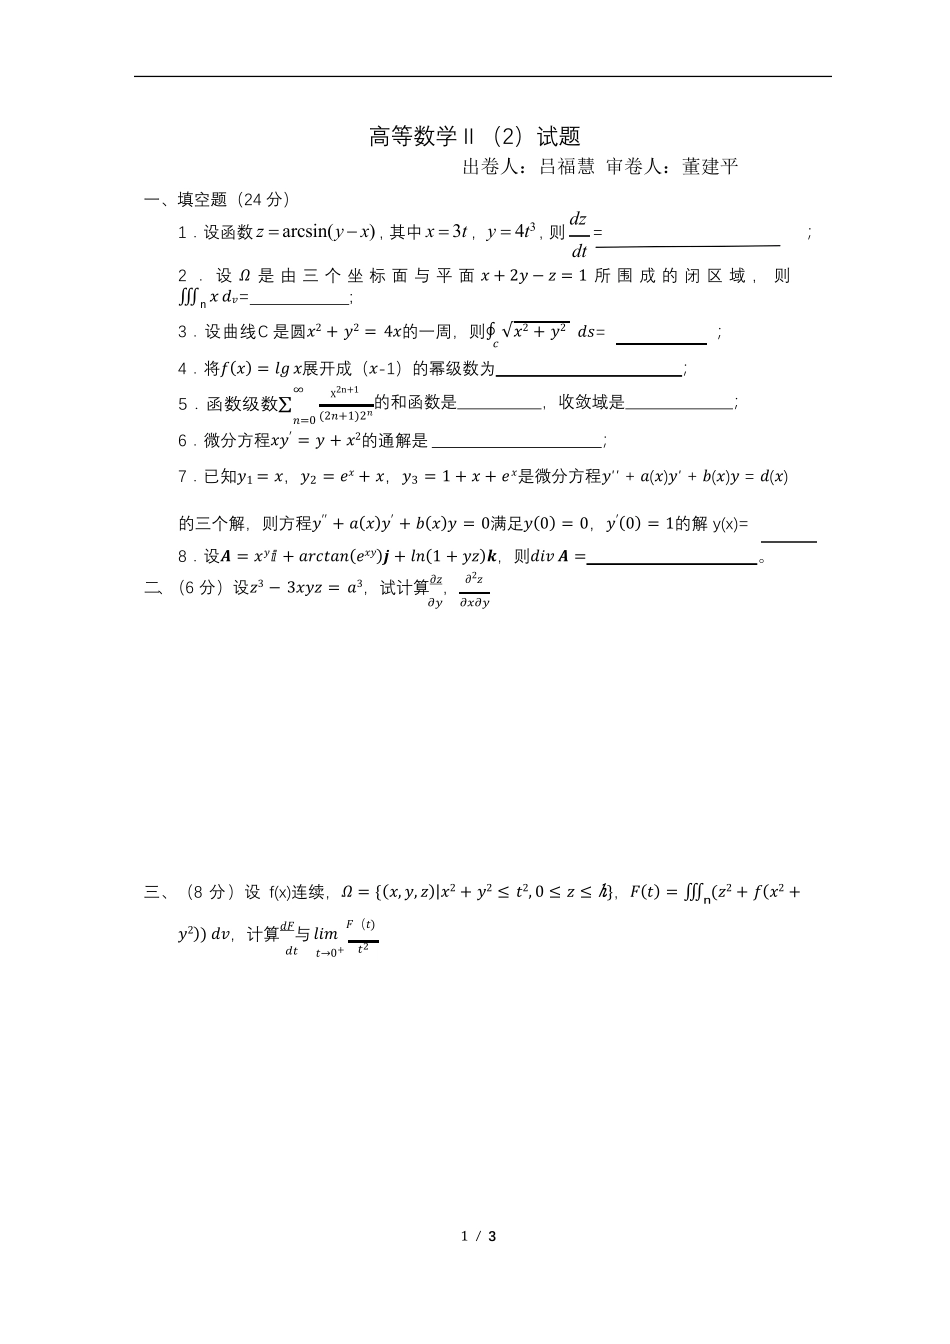 高等数学 II （2）试题
出卷人：吕福慧 审卷人：董建平
一、填空题（24 分）
1．设函数 z = arcsin(y − x)，其中 x = 3t，y = 4t³，则 dz/dt = ；
2 ．设 Ω 是 由 三 个 坐 标 面 与 平 面 x + 2y − z = 1 所 围 成 的 闭 区 域 ， 则
∭ₙ x dᵥ=___________;
3．设曲线C 是圆x² + y² = 4x的一周，则∮c √(x² + y²) ds= ；
4．将f(x) = lg x展开成（x-1）的幂级数为____________________;
5．函数级数∑_{n=0}^{∞} x²ⁿ⁺¹/(2n+1)2ⁿ的和函数是_________，收敛域是____________;
6．微分方程xy′ = y + x²的通解是 ___________________;
7．已知y₁ = x，y₂ = eˣ + x，y₃ = 1 + x + eˣ是微分方程y′′ + a(x)y′ + b(x)y = d(x)
的三个解，则方程y′′ + a(x)y′ + b(x)y = 0满足y(0) = 0，y′(0) = 1的解 y(x)=______
8．设A = xʸi + arctan(eˣʸ)j + ln(1 + yz)k，则div A =___________________。
二、（6 分）设z³ − 3xyz = a³，试计算∂z/∂y，∂²z/∂x∂y
三、（8 分）设 f(x)连续，Ω = {(x, y, z)|x² + y² ≤ t², 0 ≤ z ≤ h}，F(t) = ∭ₙ(z² + f(x² +
y²)) dv，计算dF/dt与 lim_{t→0⁺} F（t）/t²
1 / 3